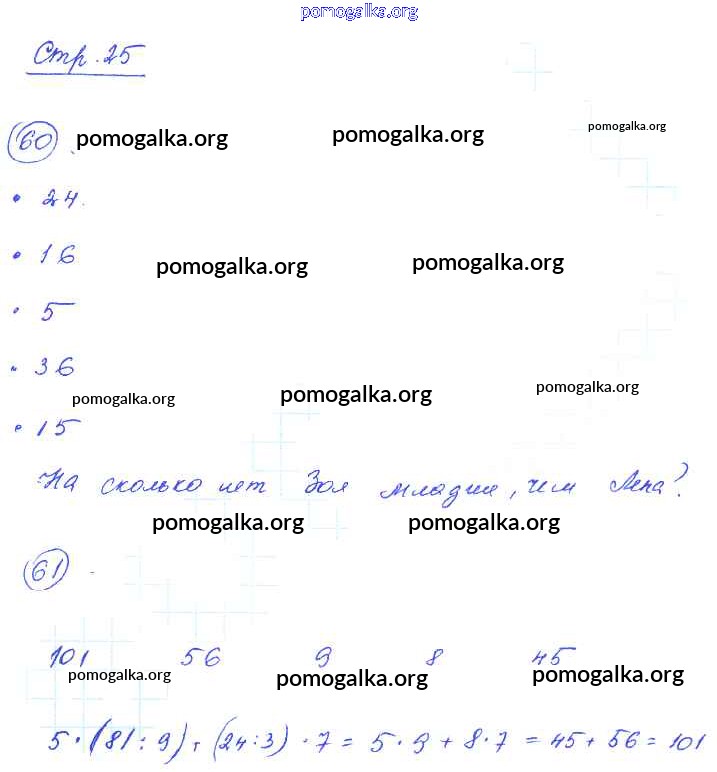 pomogalka.org
Стр. 25
60 pomogalka.org pomogalka.org pomogalka.org
• 24.
• 16
pomogalka.org pomogalka.org
• 5
• 36
pomogalka.org pomogalka.org pomogalka.org
• 15
На сколько лет Зоя младше, чем Лена?
pomogalka.org pomogalka.org
61
101 56 9 8 45
pomogalka.org pomogalka.org pomogalka.org
5 · (81 : 9) + (24 : 3) · 7 = 5 · 9 + 8 · 7 = 45 + 56 = 101